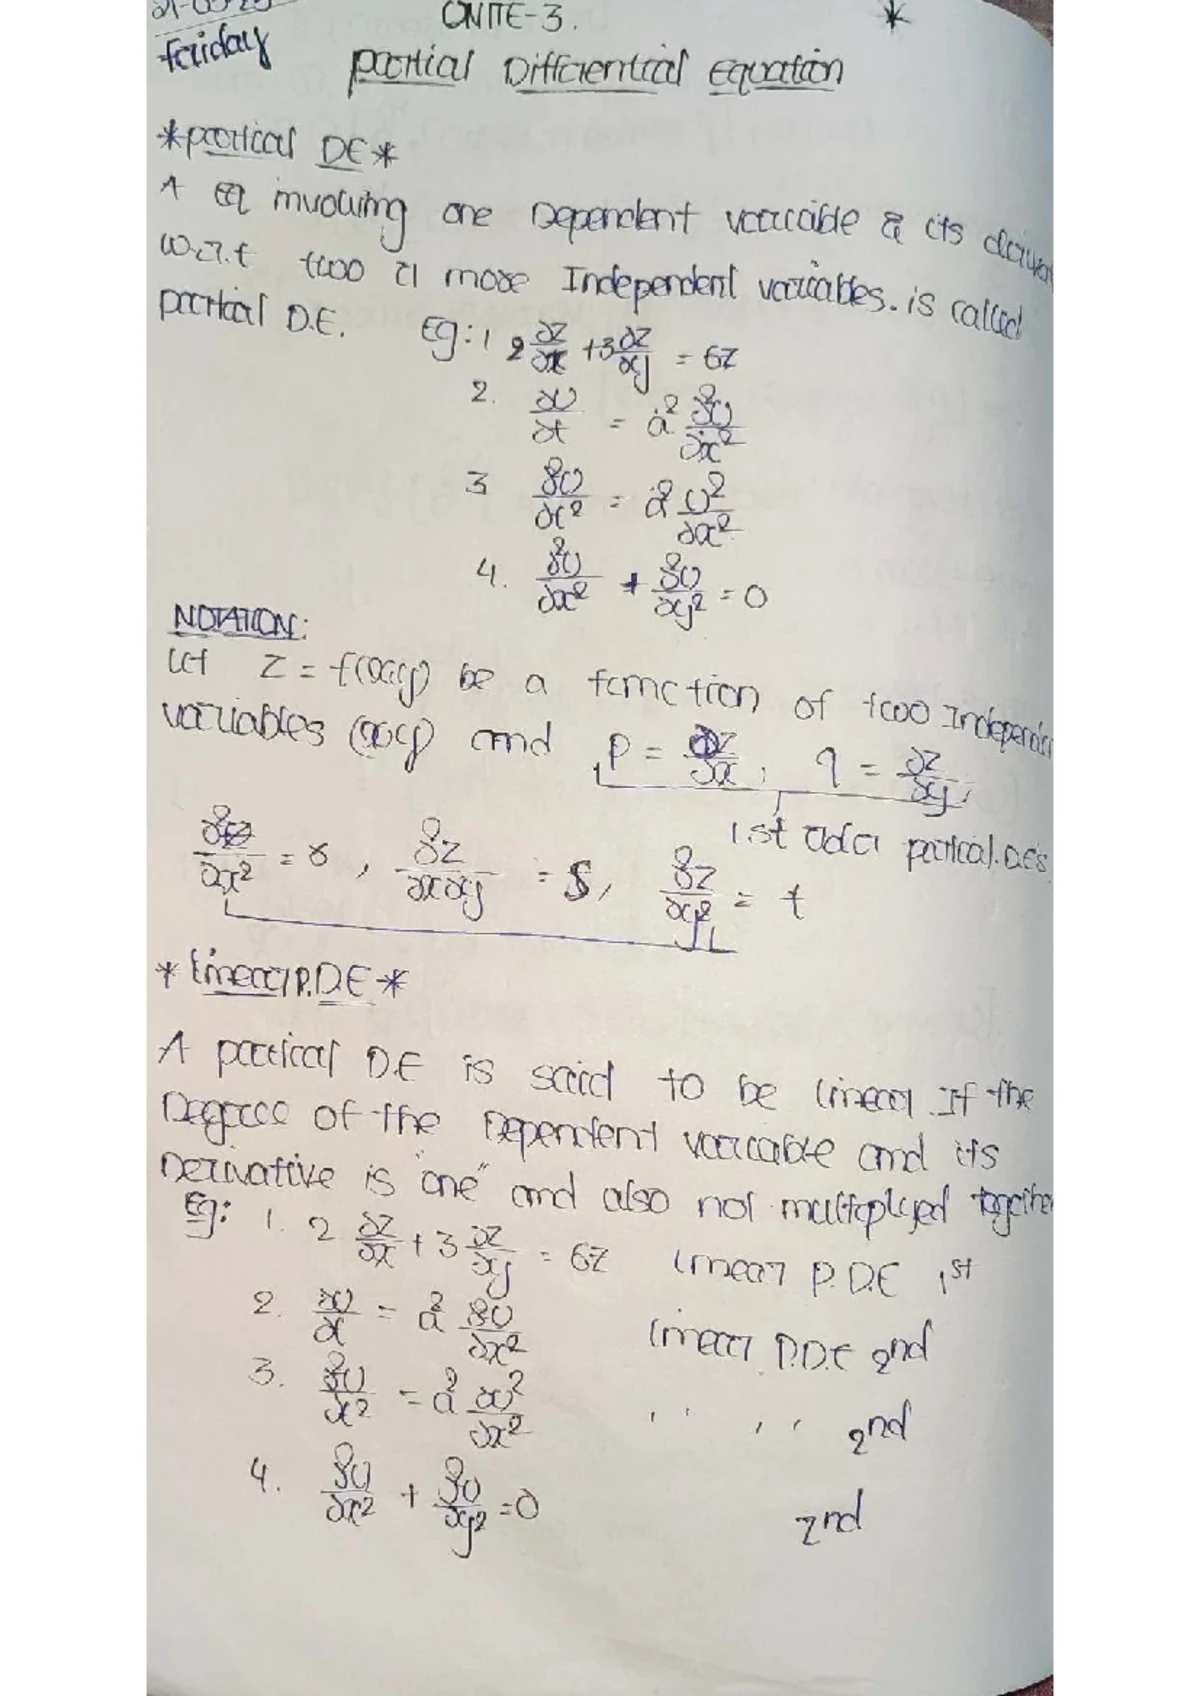 UNITE-3.
friday
Partial Differential Equation
*partial DE*
A Eq involving one Dependent variable & its
w.r.t two or more Independent variables. is called
partial D.E. Eg: 1 2 ∂z/∂x + 3 ∂z/∂y = 6z
2. ∂u/∂t = a² ∂²u/∂x²
3 ∂²u/∂x² = a² ∂u²/∂x²
4. ∂²u/∂x² + ∂²u/∂y² = 0
NOTATION:
Let z = f(x,y) be a function of two
variables (x,y) and p = ∂z/∂x, q = ∂z/∂y,
1st order partial.DEs
∂²z/∂x² = r, ∂²z/∂x∂y = s, ∂²z/∂y² = t
* Linear P.D.E *
A partical D.E is said to be linear If the
Degree of the Dependent variable and its
Derivative is "one" and also not multiplyed
Eg: 1. 2 ∂z/∂x + 3 ∂z/∂y = 6z linear P.D.E 1st
2. ∂u/∂t = a² ∂²u/∂x² linear P.D.E 2nd
3. ∂²u/∂x² = a² ∂u²/∂x² ,, ,, 2nd
4. ∂²u/∂x² + ∂²u/∂y² = 0 2nd